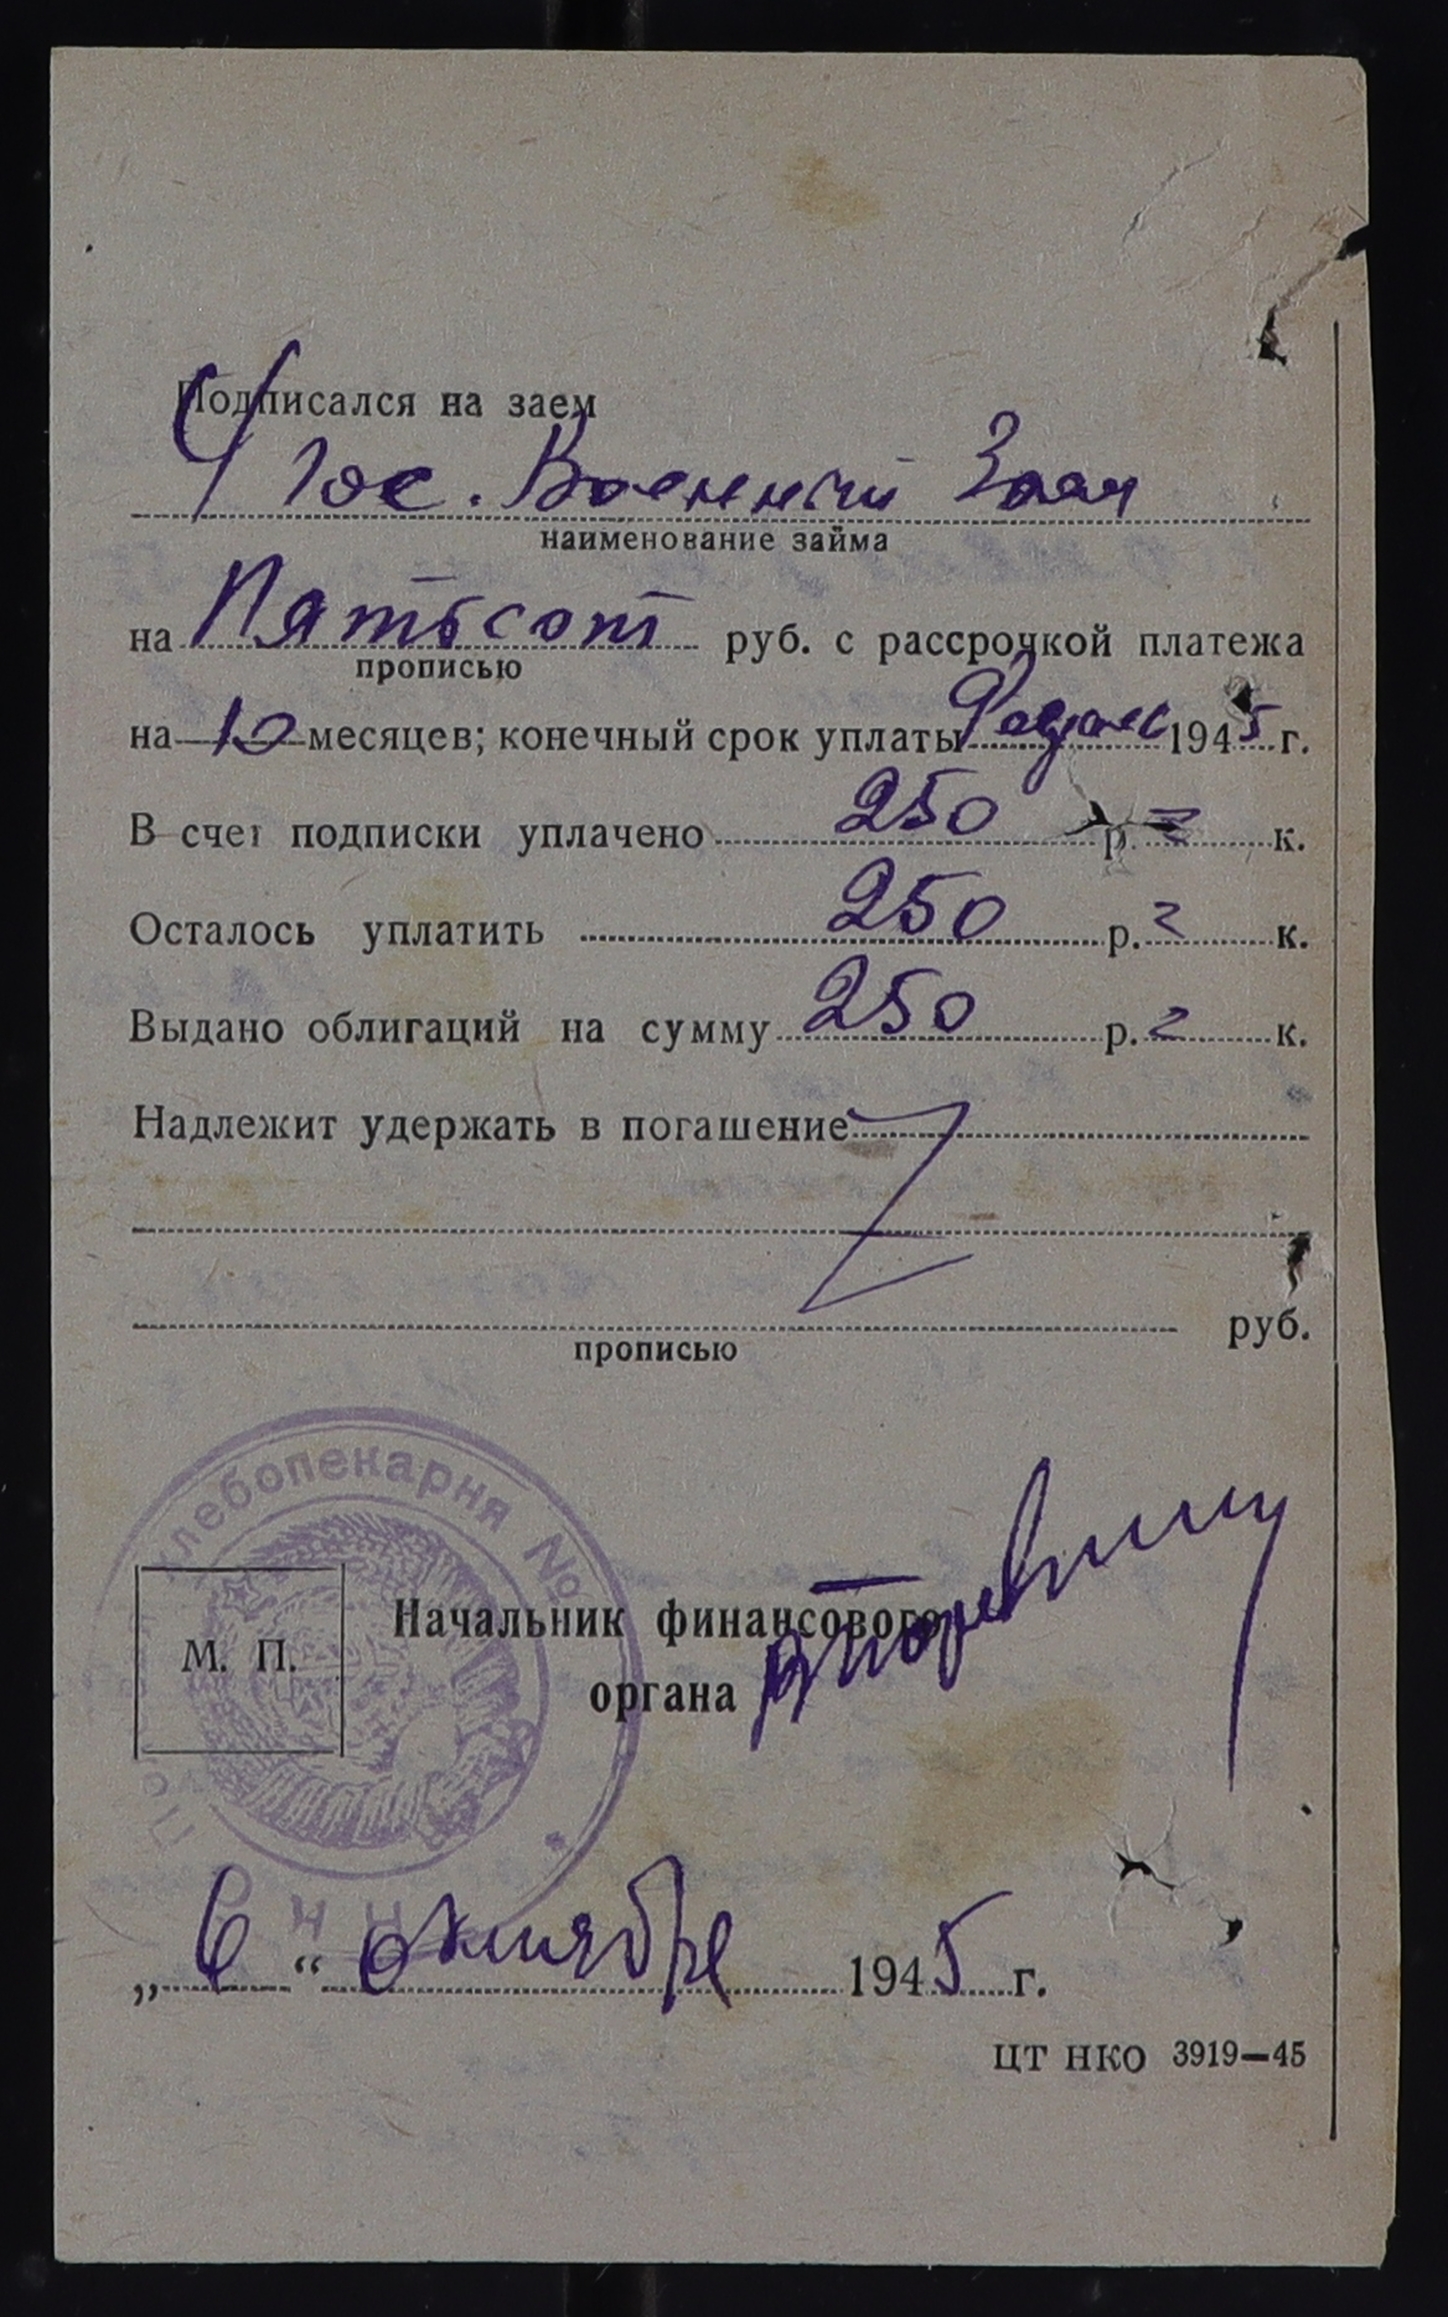 Подписался на заем
4 Гос. Военный Заем
наименование займа
на Пятьсот руб. с рассрочкой платежа
прописью
на 10 месяцев; конечный срок уплаты 1945 г.
В счет подписки уплачено 250 р. = к.
Осталось уплатить 250 р. = к.
Выдано облигаций на сумму 250 р. = к.
Надлежит удержать в погашение
руб.
прописью
хлебопекарня №
М. П.
Начальник финансового
органа
„6“ октября 1945 г.
ЦТ НКО 3919—45